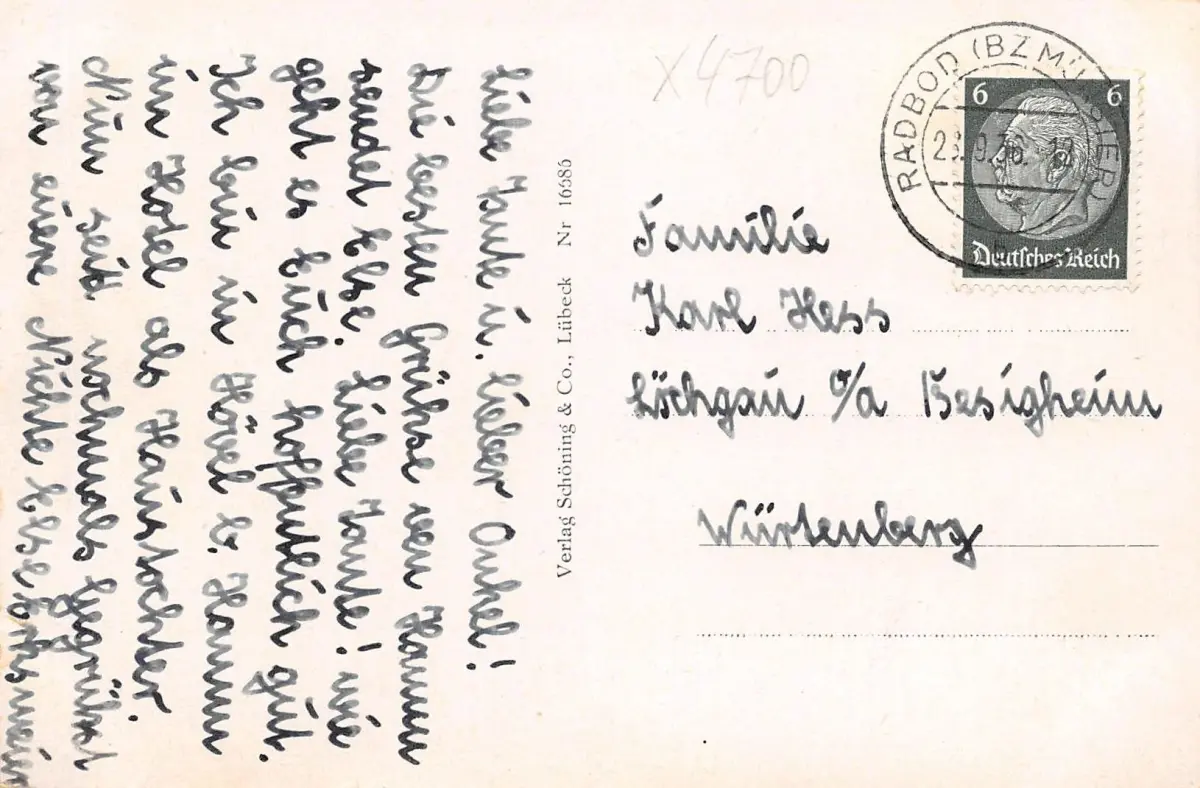 Liebe Tante u. lieber Onkel!
Die besten Grühse von Hamm
sendet Else. Liebe Tante! wie
geht es Euch hoffentlich gut.
Ich bin in Hövel b. Hamm
im Hotel als Haustochter.
Nun seit nochmals gegrühst
von eure Nichte Else
Verlag Schöning & Co., Lübeck Nr 16686
X 4700
RADBOD (BZ MÜNSTER)
9.36. 12
6 6
Deutsches Reich
Familie
Karl Hess
Löchgau O/A Besigheim
Würtenberg